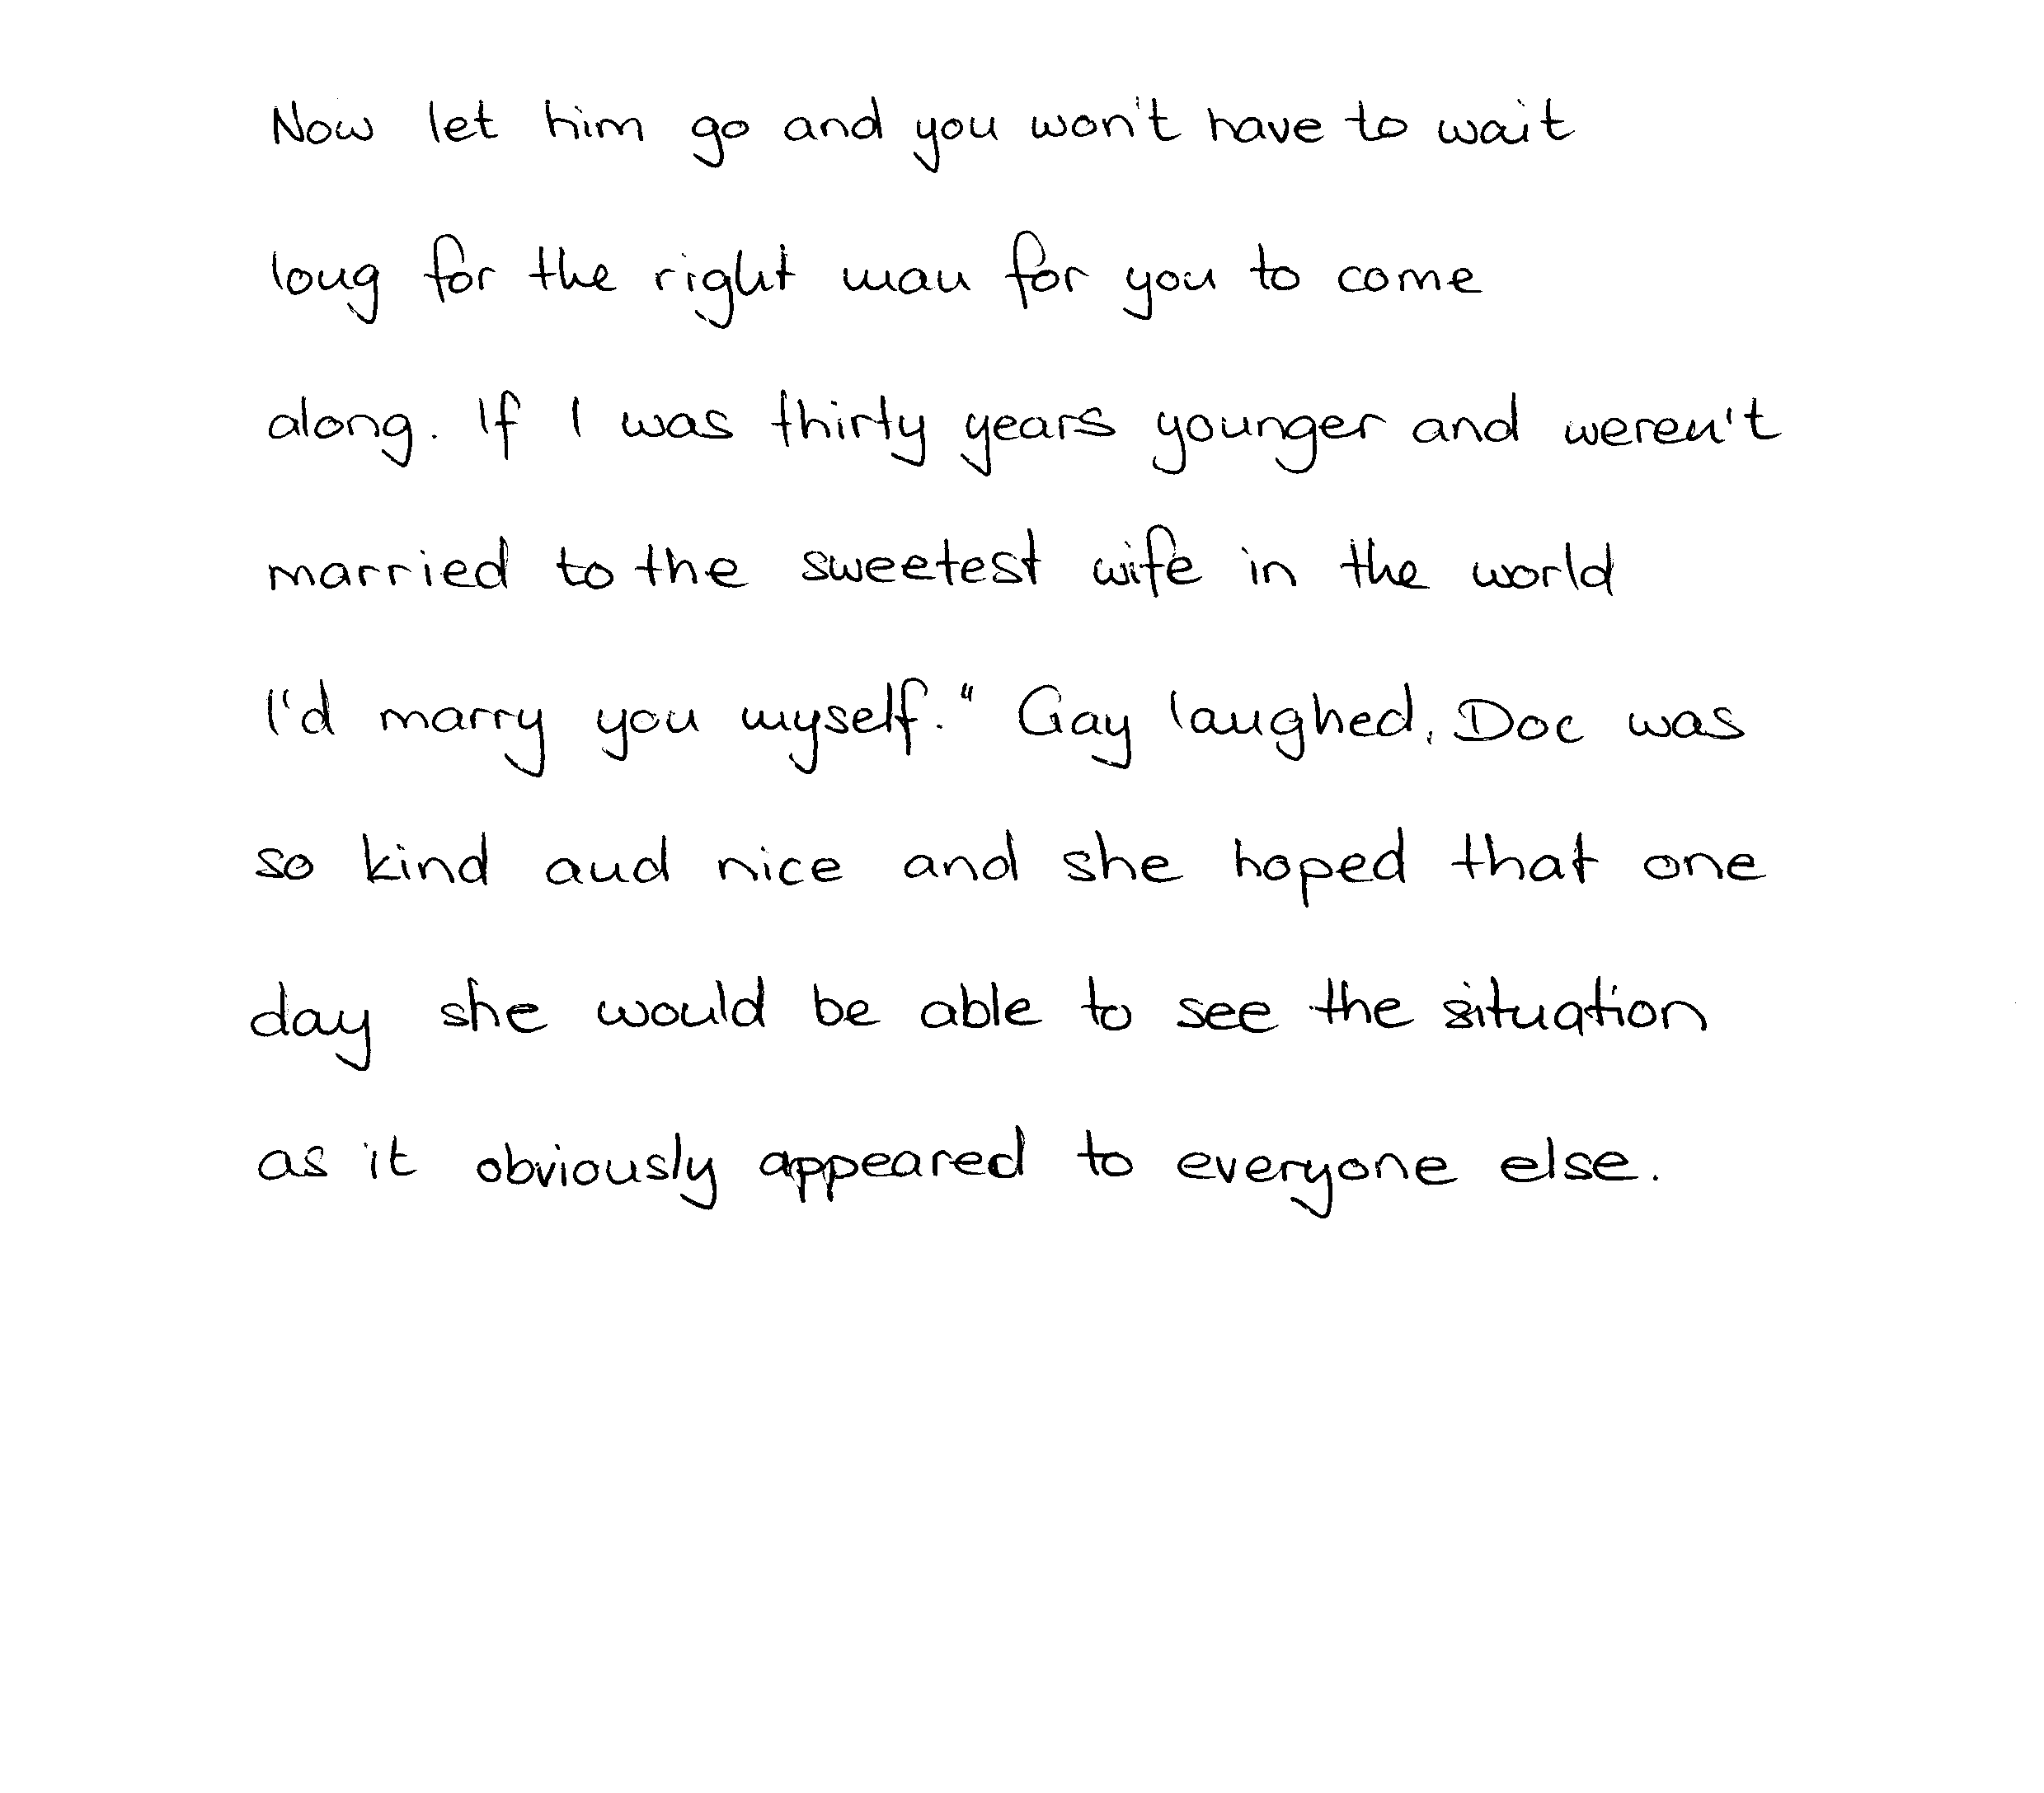 Now let him go and you won't have to wait
long for the right man for you to come
along. If I was thirty years younger and weren't
married to the sweetest wife in the world
I'd marry you myself." Gay laughed. Doc was
so kind and nice and she hoped that one
day she would be able to see the situation
as it obviously appeared to everyone else.